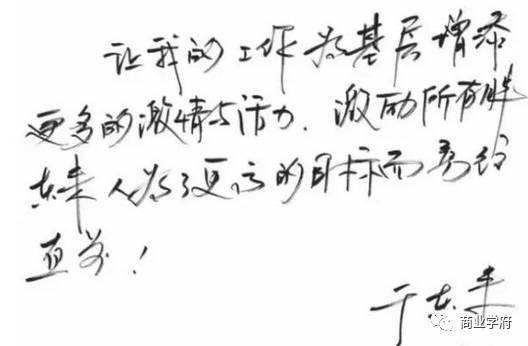 让我的工作为基层增添
更多的激情与活力.激励所有胖
东来人为了更高的目标而勇往
直前!
于东来
商业学府